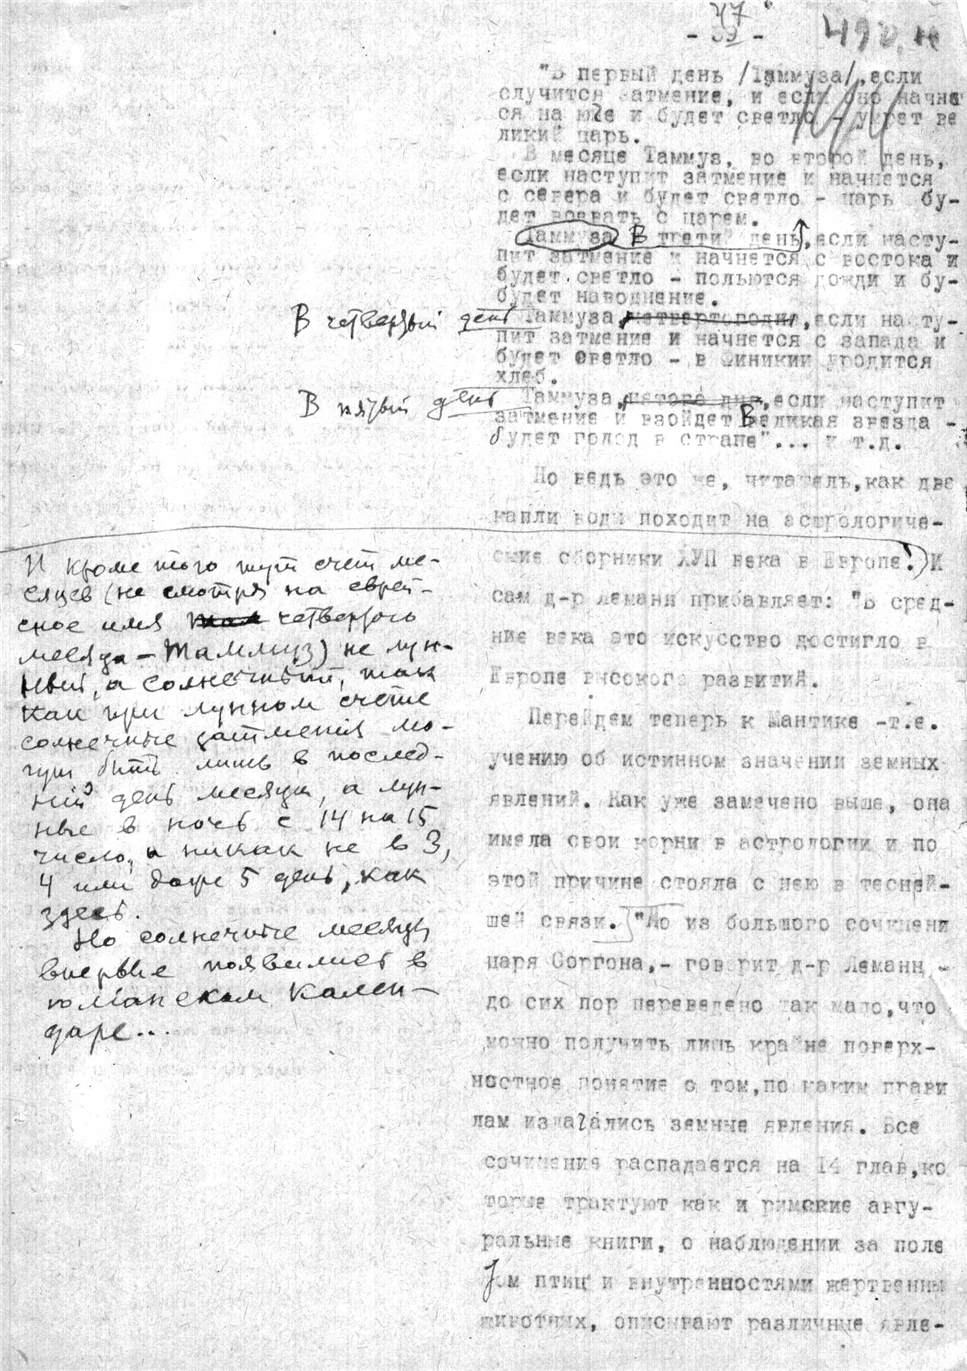 47
- 39 -
490.
"В первый день /Таммуза/, если
случится затмение, и если оно начне
ся на юге и будет светло - умрет ве
ликий царь.
В месяце Таммуз, во второй день,
если наступит затмение и начнется
с севера и будет светло - царь бу-
дет воевать с царем.
Таммуза В третий день, если насту-
пит затмение и начнется с востока и
будет светло - польются дожди и бу-
будет наводнение.
В четвертый день Таммуза, четвертогодня, если насту-
пит затмение и начнется с запада и
будет светло - в Финикии уродится
хлеб.
В пятый день Таммуза, пятого дня, если наступит
затмение и взойдет Великая звезда -
будет голод в стране"... и т.д.
Но ведь это же, читатель, как две
капли воды походит на астрологиче-
ские сборники ХУП века в Европе!) И
сам д-р Леманн прибавляет: "В сред-
ние века это искусство достигло в
Европе высокого развития.
И кроме того тут счет ме-
сяцев (не смотря на еврей-
ское имя четвертого
месяца - Таммуз) не лун-
ный, а солнечный, так
как при лунном счете
солнечные затмения мо-
гут быть лишь в послед-
ний день месяца, а лун-
ные в ночь с 14 на 15
число, а никак не в 3,
4 или даже 5 день, как
здесь.
Но солнечные месяцы
впервые появились в
юлианском кален-
даре...
Перейдем теперь к Мантике -т.е.
учению об истинном значении земных
явлений. Как уже замечено выше, она
имела свои корни в астрологии и по
этой причине стояла с нею в тесней-
шей связи. "Но из большого сочинени
царя Соргона,- говорит д-р Леманн,-
до сих пор переведено так мало, что
можно получить лишь крайне поверх-
ностное понятие о том, по каким прави
лам излагались земные явления. Все
сочинение распадается на 14 глав, ко
торые трактуют как и римские авгу-
ральные книги, о наблюдении за поле
том птиц и внутренностями жертвенны
животных, описывают различные явле-